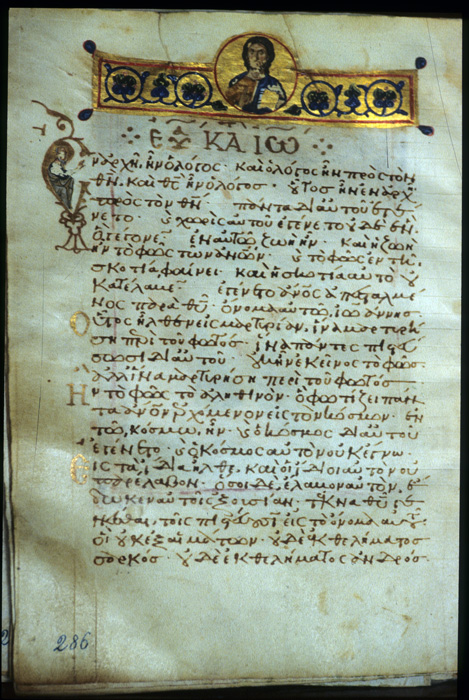 ΕΥ ΚΑ ΙΩ
Ἐν ἀρχῆ ἦν ὁ λόγος· καὶ ὁ λόγος ἦν πρὸς τὸν
θν· καὶ θς ἦν ὁ λόγος· οὗτος ἦν ἐν ἀρχῆ
πρὸς τὸν θν· πάντα δι' αὐτοῦ ἐγέ
νετο· καὶ χωρὶς αὐτοῦ ἐγένετο οὐδὲ ἓν
ὃ γέγονεν· ἐν αὐτῶ ζωὴ ἦν· καὶ ἡ ζωὴ
ἦν τὸ φῶς τῶν ἀνων· καὶ τὸ φῶς ἐν τῆ
σκοτία φαίνει· καὶ ἡ σκοτία αὐτὸ οὐ
κατέλαβεν· ἐγένετο ἄνος ἀπεσταλμέ
νος παρὰ θυ· ὄνομα αὐτῶ, ἰωάννης·
οὗτος ἦλθεν εἰς μαρτυρίαν, ἵνα μαρτυρή
ση περὶ τοῦ φωτός· ἵνα πάντες πιστεύ
σωσι δι' αὐτοῦ· οὐκ ἦν ἐκεῖνος τὸ φῶς·
ἀλλ' ἵνα μαρτυρήση περὶ τοῦ φωτός·
ἦν τὸ φῶς τὸ ἀληθινόν· ὃ φωτίζει πάν
τα ἄνον ἐρχόμενον εἰς τὸν κόσμον· ἐν
τῶ κόσμω ἦν· καὶ ὁ κόσμος δι' αὐτοῦ
ἐγένετο· καὶ ὁ κόσμος αὐτὸν οὐκ ἔγνω·
εἰς τὰ ἴδια ἦλθε· καὶ οἱ ἴδιοι αὐτὸν οὐ
παρέλαβον· ὅσοι δὲ ἔλαβον αὐτόν, ἔ
δωκεν αὐτοῖς ἐξουσίαν τέκνα θυ γε
νέσθαι, τοῖς πιστεύουσιν εἰς τὸ ὄνομα αὐτοῦ·
οἳ οὐκ ἐξ αἱμάτων· οὐδὲ ἐκ θελήματος
σαρκός· οὐδὲ ἐκ θελήματος ἀνδρός·
286